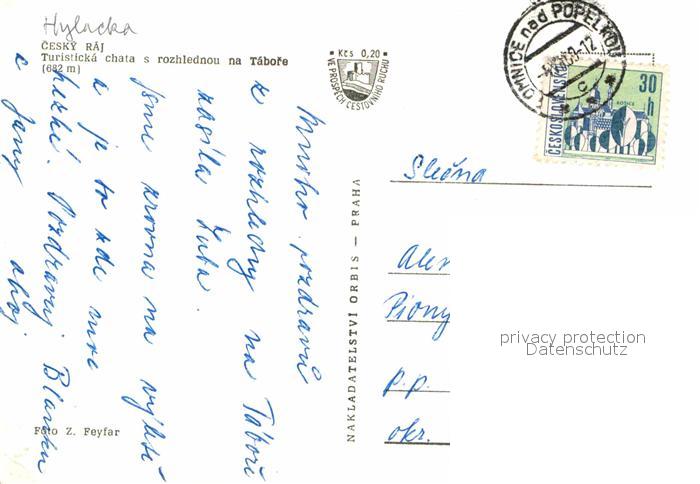 Hylacka
ČESKÝ RÁJ
Turistická chata s rozhlednou na Táboře
(682 m)
Kčs 0,20
VE PROSPĚCH CESTOVNÍHO RUCHU
LOMNICE nad POPELKOU
-12
C
ČESKOSLOVENSKO
30 h
KOSICE
Mnoho pozdravů
z rozhledny na Táboře
zasílá Luba.
Jsme zrovna na výletě
a je to zde moc
hezké. Pozdravuj Blanku
a Jany ahoj.
Foto Z. Feyfar
NAKLADATELSTVÍ ORBIS — PRAHA
Slečna
Alex
Piony
p.p.
okr.
privacy protection
Datenschutz